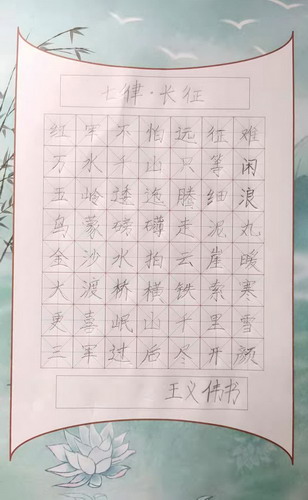 七律·长征
红军不怕远征难
万水千山只等闲
五岭逶迤腾细浪
乌蒙磅礴走泥丸
金沙水拍云崖暖
大渡桥横铁索寒
更喜岷山千里雪
三军过后尽开颜
王义伟书